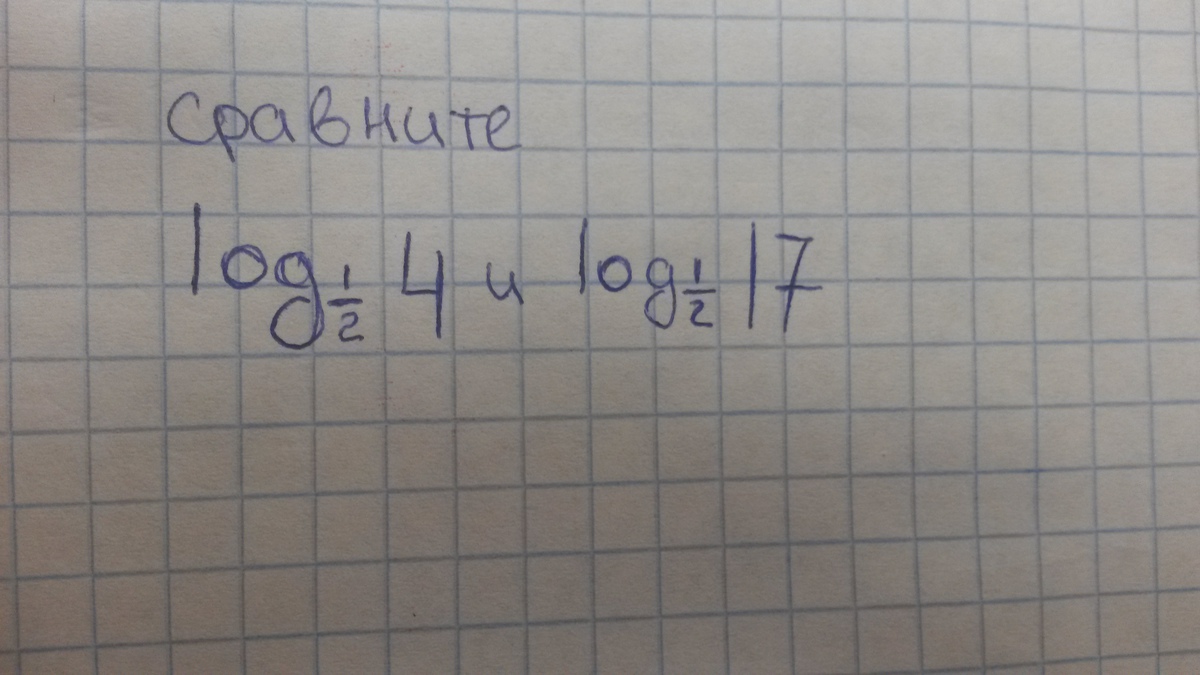 сравните
log 1/2 4 и log 1/2 17